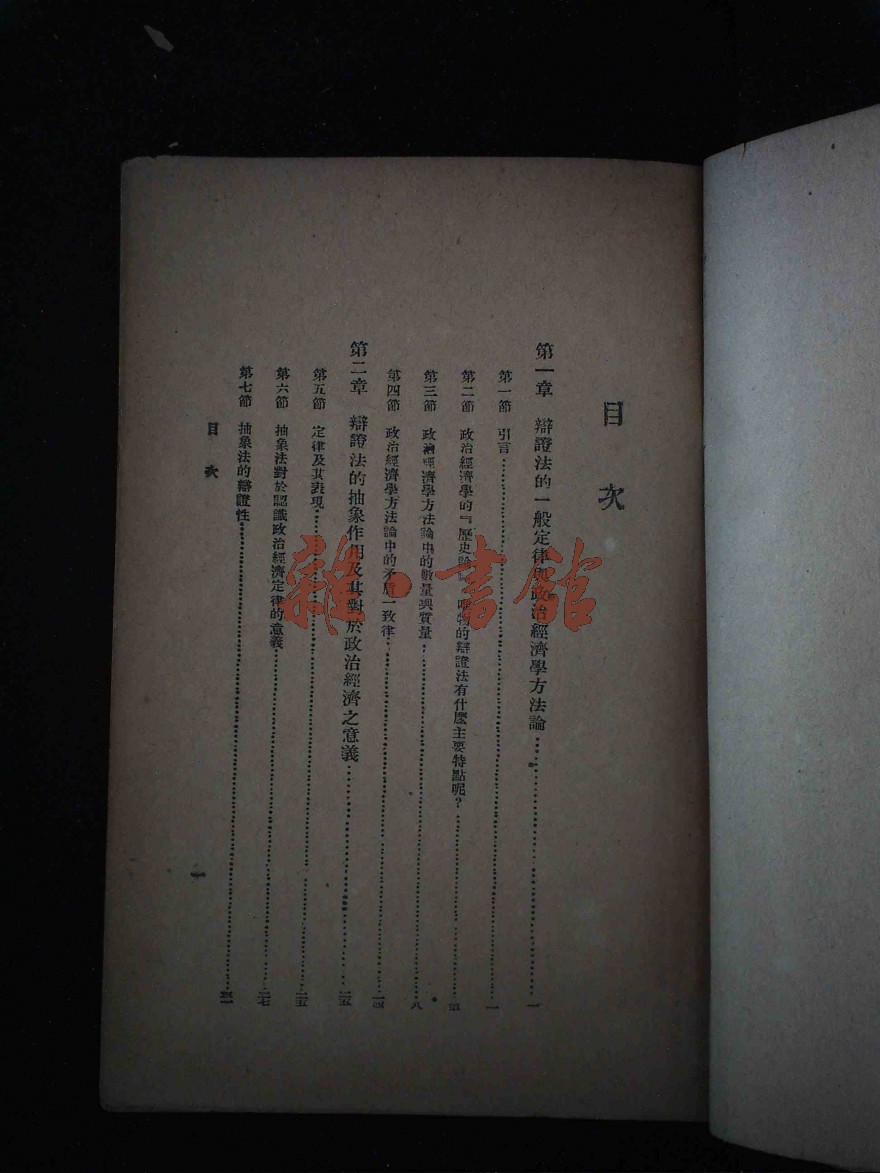 目次
第一章 辯證法的一般定律與政治經濟學方法論 一
第一節 引言 一
第二節 政治經濟學的『歷史論』唯物的辯證法有什麼主要特點呢?
第三節 政治經濟學方法論中的數量與質量 八
第四節 政治經濟學方法論中的矛盾一致律 一四
第二章 辯證法的抽象作用及其對於政治經濟之意義 二五
第五節 定律及其表現 二五
第六節 抽象法對於認識政治經濟定律的意義 二七
第七節 抽象法的辯證性
目次
一
雜·書館